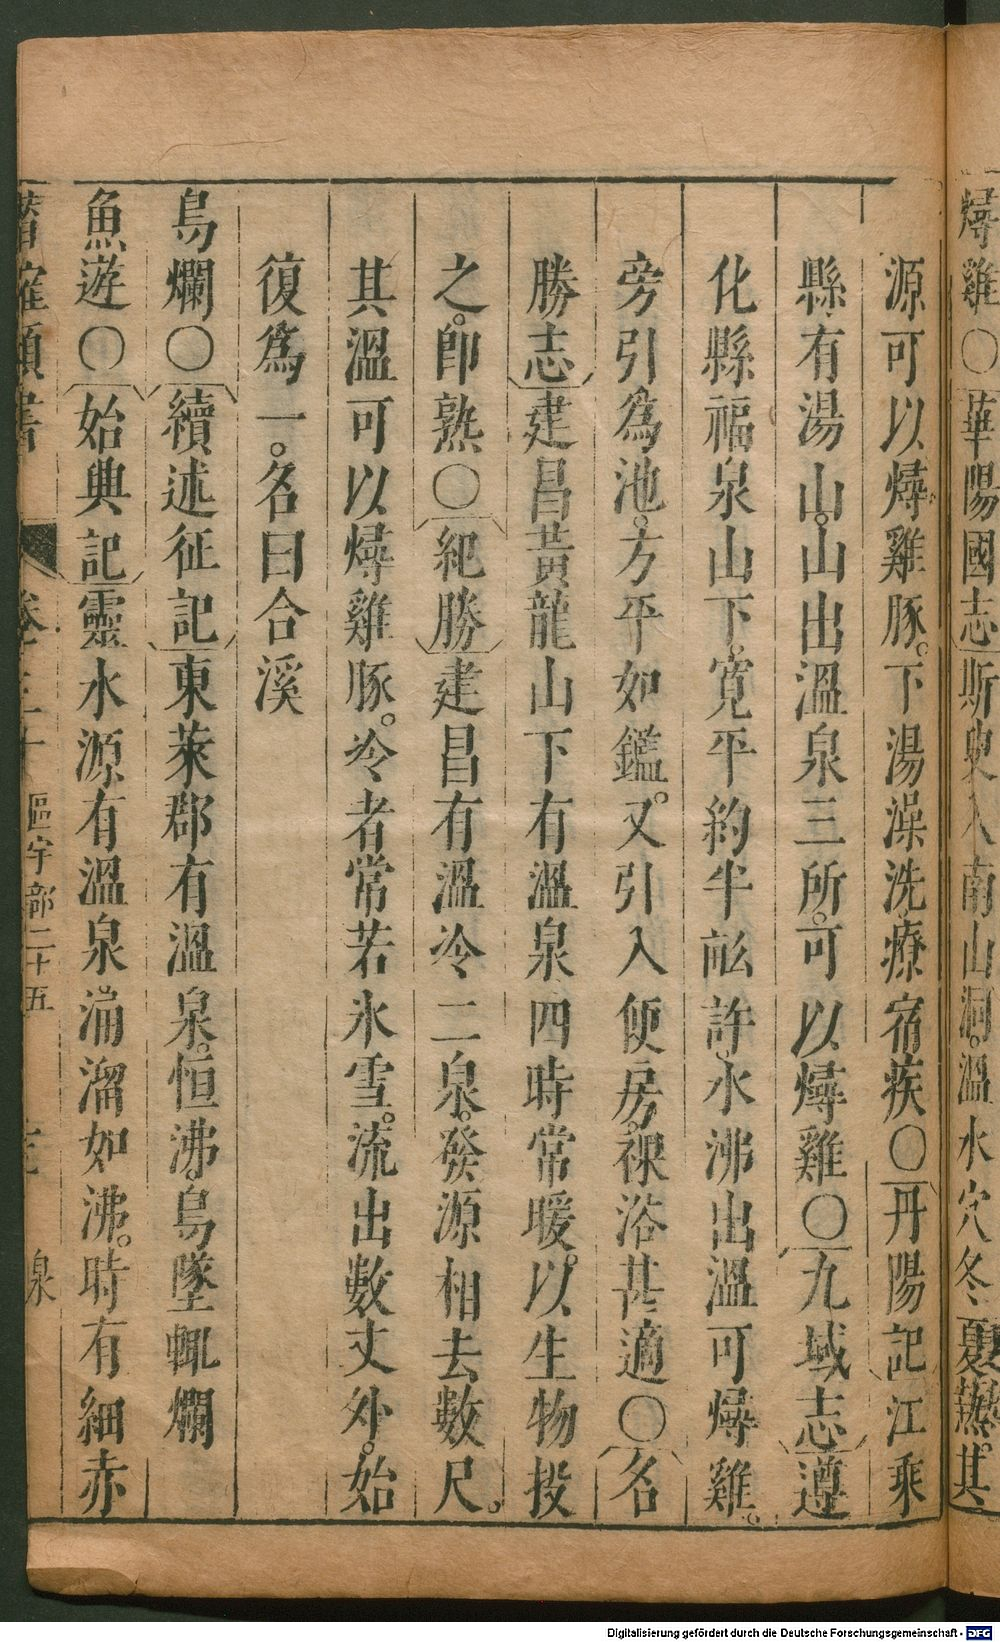 燖雞〇華陽國志斯臾入南山洞溫水穴冬夏熱其
源可以燖雞豚下湯澡洗療宿疾〇丹陽記江乘
縣有湯山山出溫泉三所可以燖雞〇九域志遵
化縣福泉山下寬平約半畝許水沸出溫可燖雞
旁引爲池方平如鑑又引入便房裸浴甚適〇名
勝志建昌黃龍山下有溫泉四時常暖以生物投
之卽熟〇紀勝建昌有溫冷二泉發源相去數尺
其溫可以燖雞豚冷者常若氷雪流出數丈外始
復爲一名曰合溪
鳥爛〇續述征記東萊郡有溫泉恒沸鳥墜輒爛
魚遊〇始興記靈水源有溫泉涌溜如沸時有細赤
潛確類書 卷三十 區宇部二十五 泉
Digitalisierung gefördert durch die Deutsche Forschungsgemeinschaft - DFG